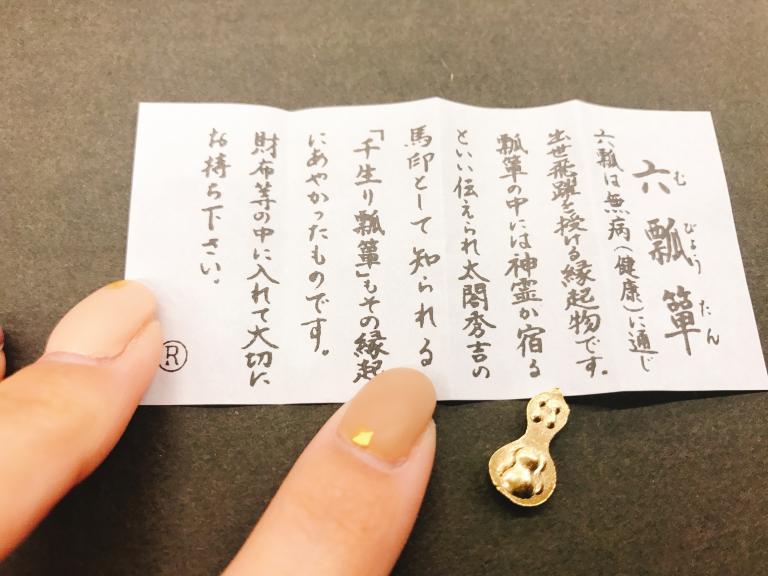 六瓢簞
むびょうたん
六瓢は無病(健康)に通じ
出世飛躍を授ける縁起物です。
瓢簞の中には神霊が宿る
といい伝えられ太閤秀吉の
馬印として知られる
「千生り瓢簞」もその縁起
にあやかったものです。
財布等の中に入れて大切に
お持ち下さい。
®